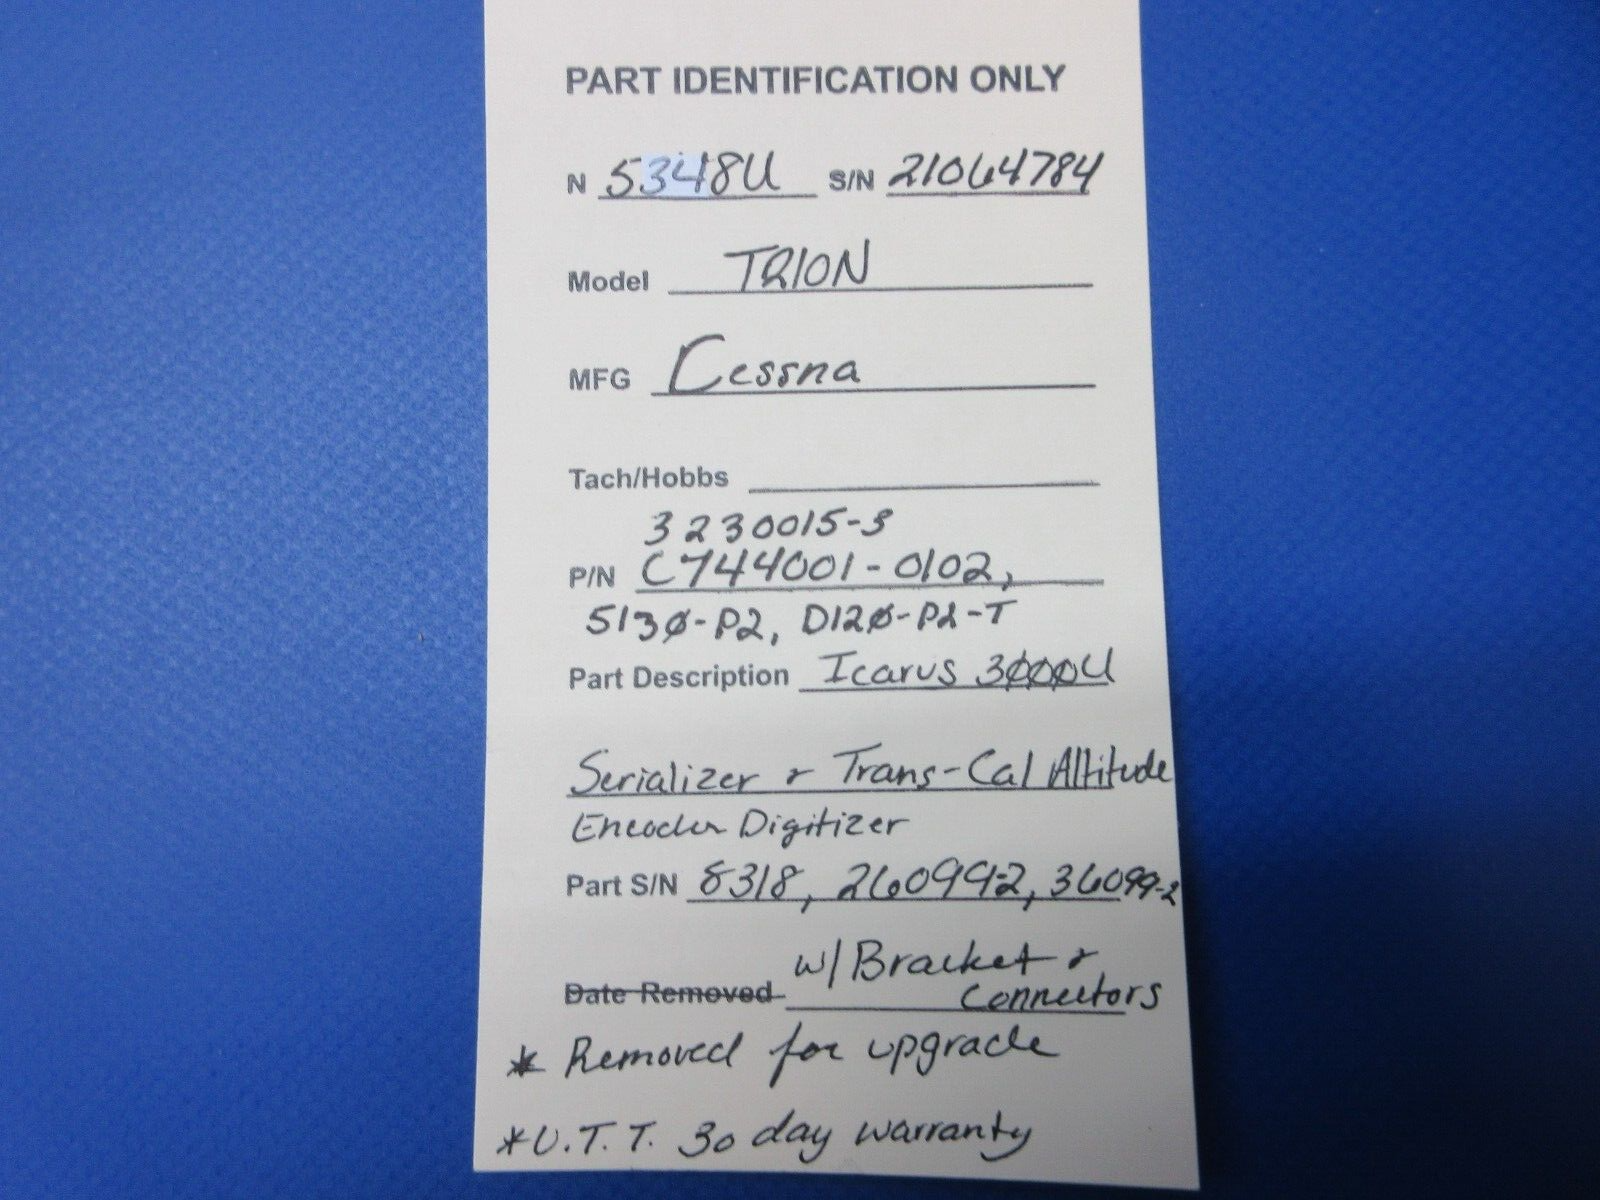 PART IDENTIFICATION ONLY
N 5348U S/N 21064784
Model TRION
MFG Cessna
Tach/Hobbs
3230015-3
P/N C744001-0102,
5130-P2, D120-P2-T
Part Description Icarus 3000U
Serializer & Trans-Cal Altitude
Encoder Digitizer
Part S/N 8318, 26099-2, 36099-2
w/ Bracket &
Date Removed Connectors
* Removed for upgrade
* U.T.T. 30 day warranty